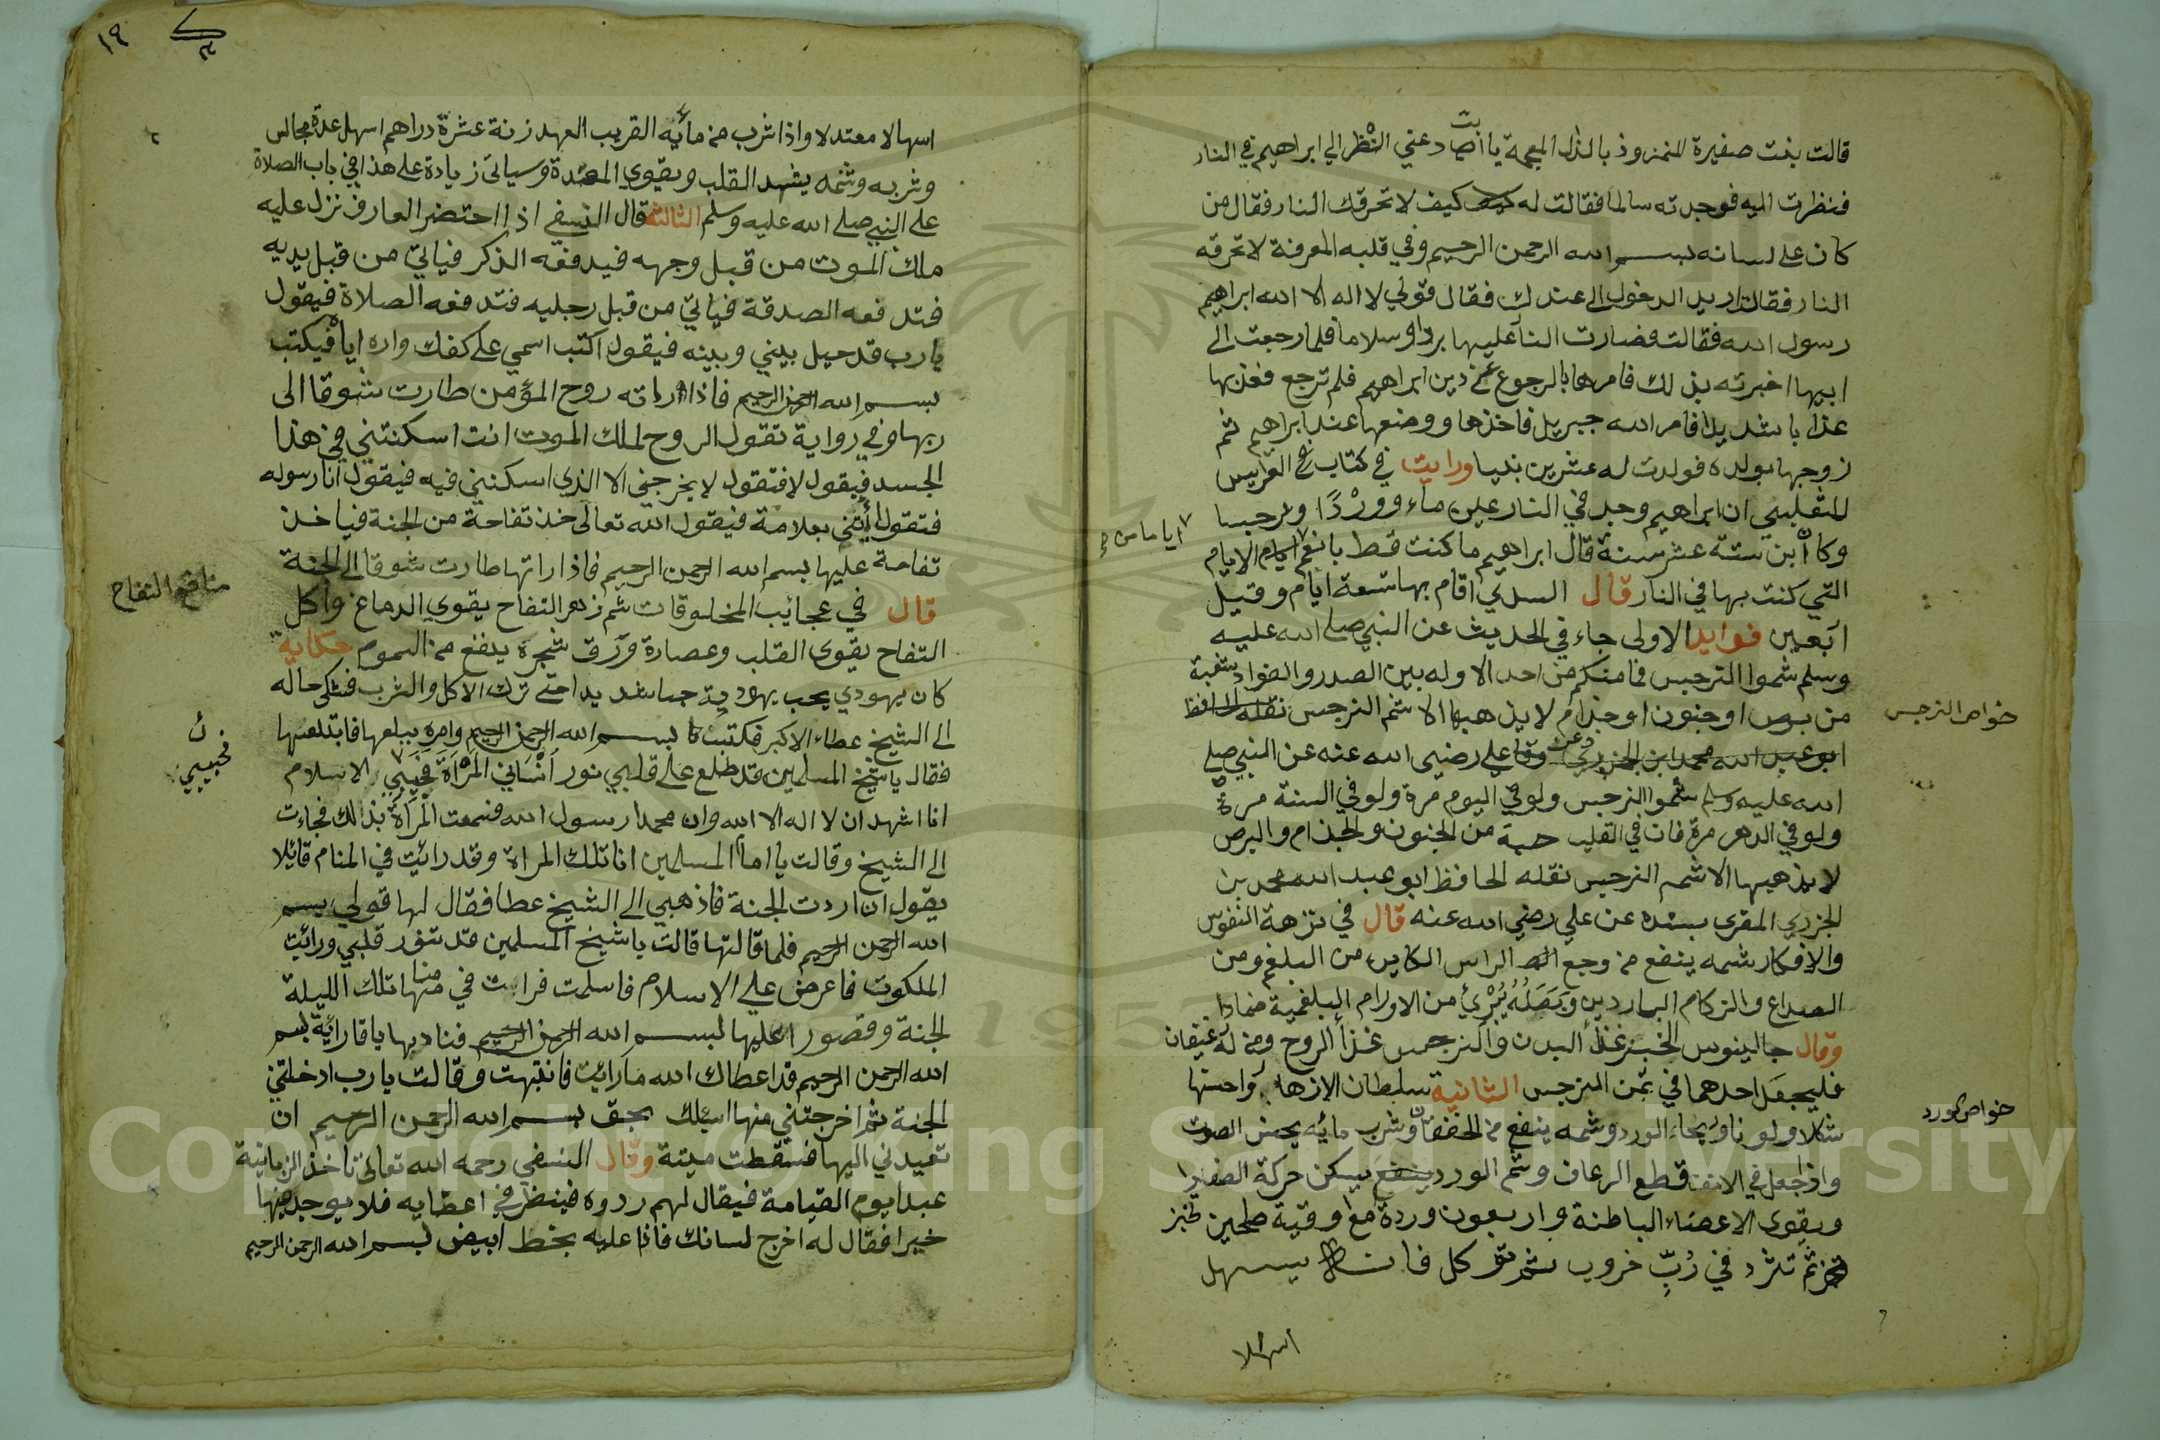 قالت بنت صغيرة للنمروذ بالذال المعجمة يا ابت دعني انظر الي ابراهيم في النار
فنظرت اليه فوجدته سالما فقالت له كيف لا تحرقك النار فقال من
كان على لسانه بسم الله الرحمن الرحيم وفي قلبه المعرفة لا تحرقه
النار فقالت اريد الدخول الى عندك فقال قولي لا اله الا الله ابراهيم
رسول الله فقالت فصارت النار عليها بردا وسلاما فلما رجعت الى
ابيها اخبرته بذلك فامرها بالرجوع عن دين ابراهيم فلم ترجع فعذبها
عذابا شديدا فامر الله جبريل فاخذها ووضعها عند ابراهيم ثم
زوجها بولده فولدت له عشرين نبيا ورايت في كتاب العرايس
للثعلبي ان ابراهيم وجد في النار عين ماء ووردا ونرجسا
وكان ابن ستة عشر سنة قال ابراهيم ما كنت قط بانعم اياما من الايام
التي كنت بها في النار قال السدي اقام بها سبعة ايام وقيل
اربعين فوايد الاولى جاء في الحديث عن النبي صلى الله عليه
وسلم شموا النرجس فما منكم من احد الا وله بين الصدر والفواد شعبة
من برص او جنون او جذام لا يذهبها الا شم النرجس نقله الحافظ
ابو عبد الله محمد ابن الجزري وعن علي رضي الله عنه عن النبي صلى
الله عليه وسلم شموا النرجس ولو في اليوم مرة ولو في السنة مرة
ولو في الدهر مرة فان في القلب حبة من الجنون والجذام والبرص
لا يذهبها الا شمه النرجس نقله الحافظ ابو عبد الله محمد بن
الجزري المقري بسنده عن علي رضي الله عنه قال في نزهة النفوس
والافكار شمه ينفع من وجع الراس الكاين من البلغم ومن
الصداع والزكام الباردين وبصله يبرئ من الاورام البلغمية ضمادا
وقال جالينوس الخبز غذا البدن والنرجس غذا الروح ومن له رغيفان
فليجعل احدهما في ثمن النرجس الثانية سلطان الازهار واحسنها
شكلا ولونا وريحا الورد وشمه ينفع من الخفقان وشرب مائه يحسن الصوت
واذا جعل في الانف قطع الرعاف وشم الورد يسكن حركة الصفرا
ويقوي الاعضاء الباطنة واربعون وردة مع اوقية طحين تخبز
ثم تثرد في رب خروب ثم توكل فانه يسهل
اسهالا
خواص النرجس
خواص الورد
اياما من
١٩
اسهالا معتدلا واذا شرب من مائه القريب العهد زنة عشرة دراهم اسهل عدة مجالس
وشربه وشمه يشد القلب ويقوي المعدة وسياتي زيادة على هذا في باب الصلاة
على النبي صلى الله عليه وسلم الثالثة قال النسفي اذا احتضر العارف نزل عليه
ملك الموت من قبل وجهه فيدفعه الذكر فياتي من قبل يديه
فتدفعه الصدقة فياتي من قبل رجليه فتدفعه الصلاة فيقول
يارب قد حيل بيني وبينه فيقول اكتب اسمي على كفك واره اياه فيكتب
بسم الله الرحمن الرحيم فاذا راته روح المؤمن طارت شوقا الى
ربها وفي رواية تقول الروح لملك الموت انت اسكنتني في هذا
الجسد فيقول لا فتقول لا يخرجني الا الذي اسكنني فيه فيقول انا رسوله
فتقول أتني بعلامة فيقول الله تعالى خذ تفاحة من الجنة فياخذ
تفاحة عليها بسم الله الرحمن الرحيم فاذا راتها طارت شوقا الى الجنة
قال في عجائب المخلوقات شم زهر التفاح يقوي الدماغ واكل
التفاح يقوي القلب وعصارة ورق شجره ينفع من السموم حكاية
كان يهودي يحب يهودية حبا شديدا حتى ترك الاكل والشرب فشكى حاله
الى الشيخ عطاء الاكبر فكتب له بسم الله الرحمن الرحيم وامره ببلعها فابتلعها
فقال يا شيخ المسلمين قد طلع على قلبي نور انساني المراة فحببني الاسلام
انا اشهد ان لا اله الا الله وان محمدا رسول الله فسمعت المراة بذلك فجاءت
الى الشيخ وقالت يا امام المسلمين انا تلك المراة وقد رائت في المنام قائلا
يقول ان اردت الجنة فاذهبي الى الشيخ عطا فقال لها قولي بسم
الله الرحمن الرحيم فلما قالتها قالت يا شيخ المسلمين قد تنور قلبي ورائت
الملكوت فاعرض علي الاسلام فاسلمت فرات في منامها تلك الليلة
الجنة وقصورا عليها بسم الله الرحمن الرحيم فناديها يا قارئة بسم
الله الرحمن الرحيم قد اعطاك الله ما رائت فانتبهت وقالت يارب ادخلتني
الجنة ثم اخرجتني منها اسئلك بحق بسم الله الرحمن الرحيم ان
تعيدني اليها فسقطت ميتة وقال النسفي رحمه الله تعالى تاخذ الزبانية
عبدا يوم القيامة فيقال لهم ردوه فينظر في اعضايه فلا يوجد فيها
خيرا فقال له اخرج لسانك فاذا عليه بخط ابيض بسم الله الرحمن الرحيم
منافع التفاح
فحببني
Copyright © King Saud University
1957